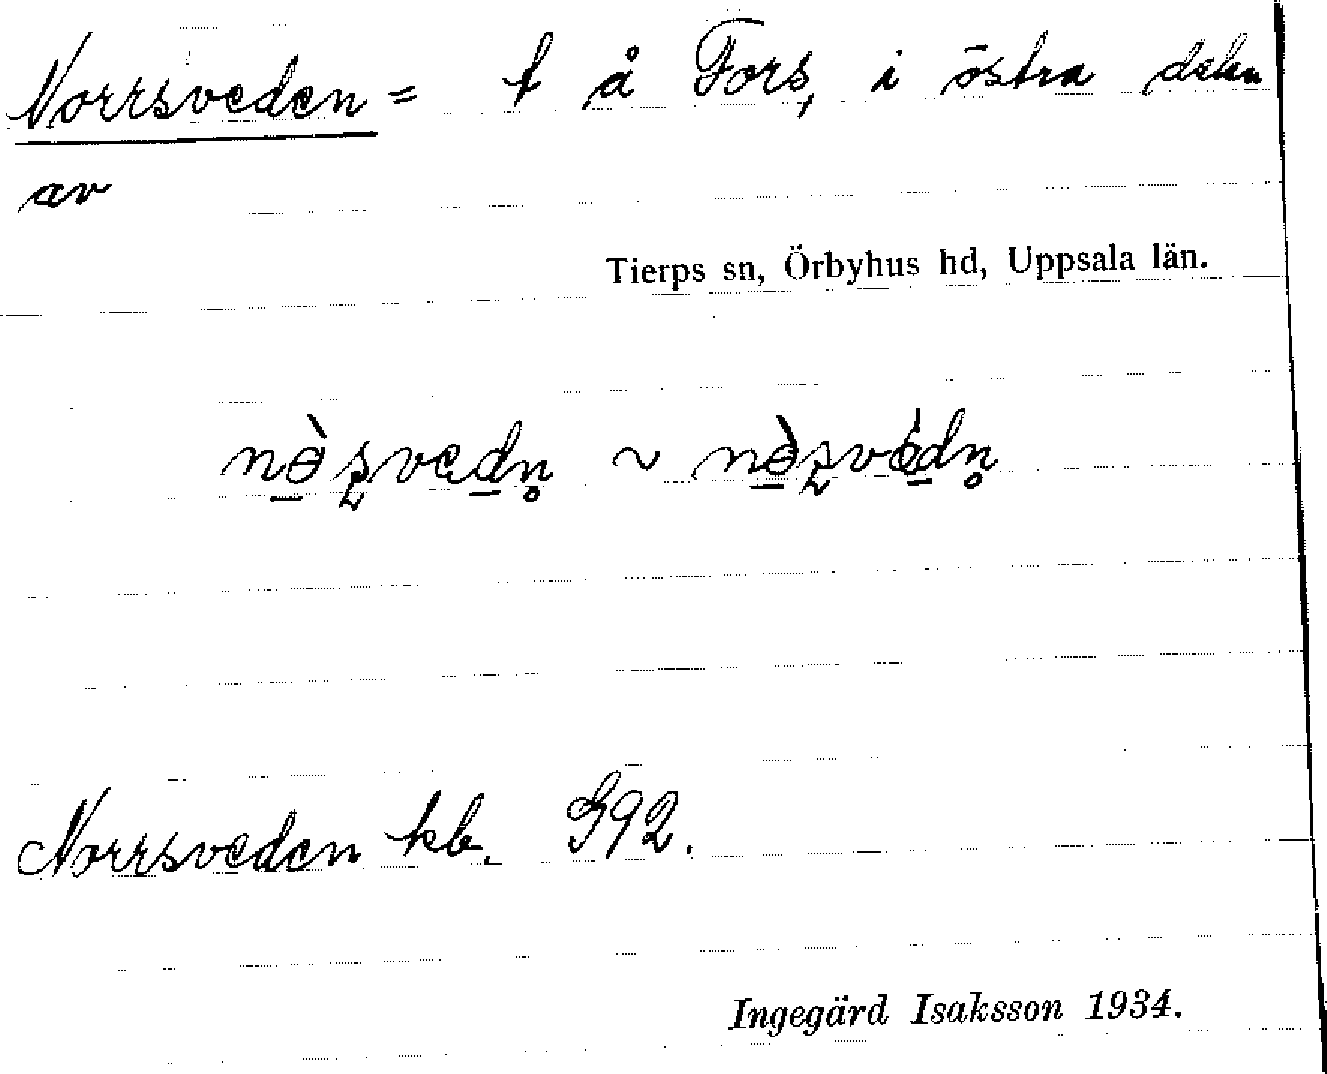 Norrsveden = t å Fors, i östra delen
av
Tierps sn, Örbyhus hd, Uppsala län.
Norrsveden kb. 992.
Ingegärd Isaksson 1934.